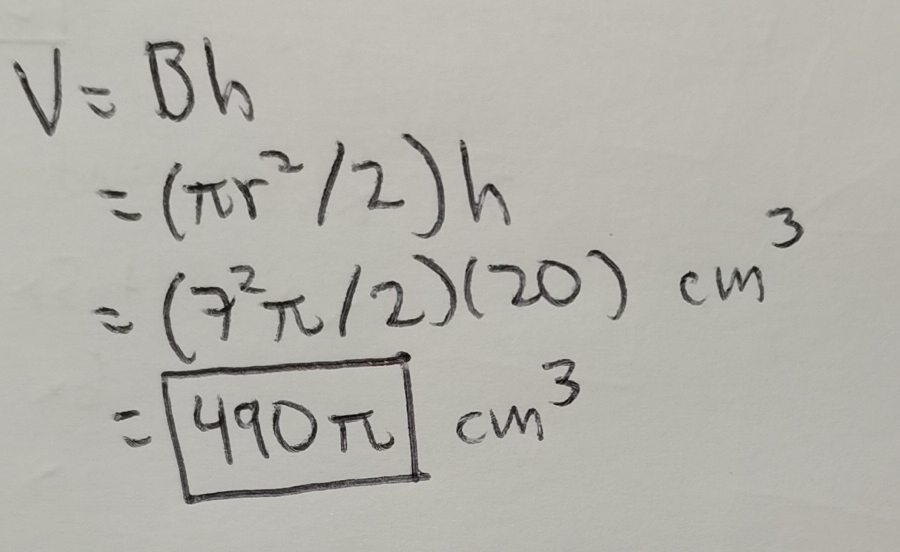 V = Bh
= (πr²/2)h
= (7²π/2)(20) cm³
= 490π cm³